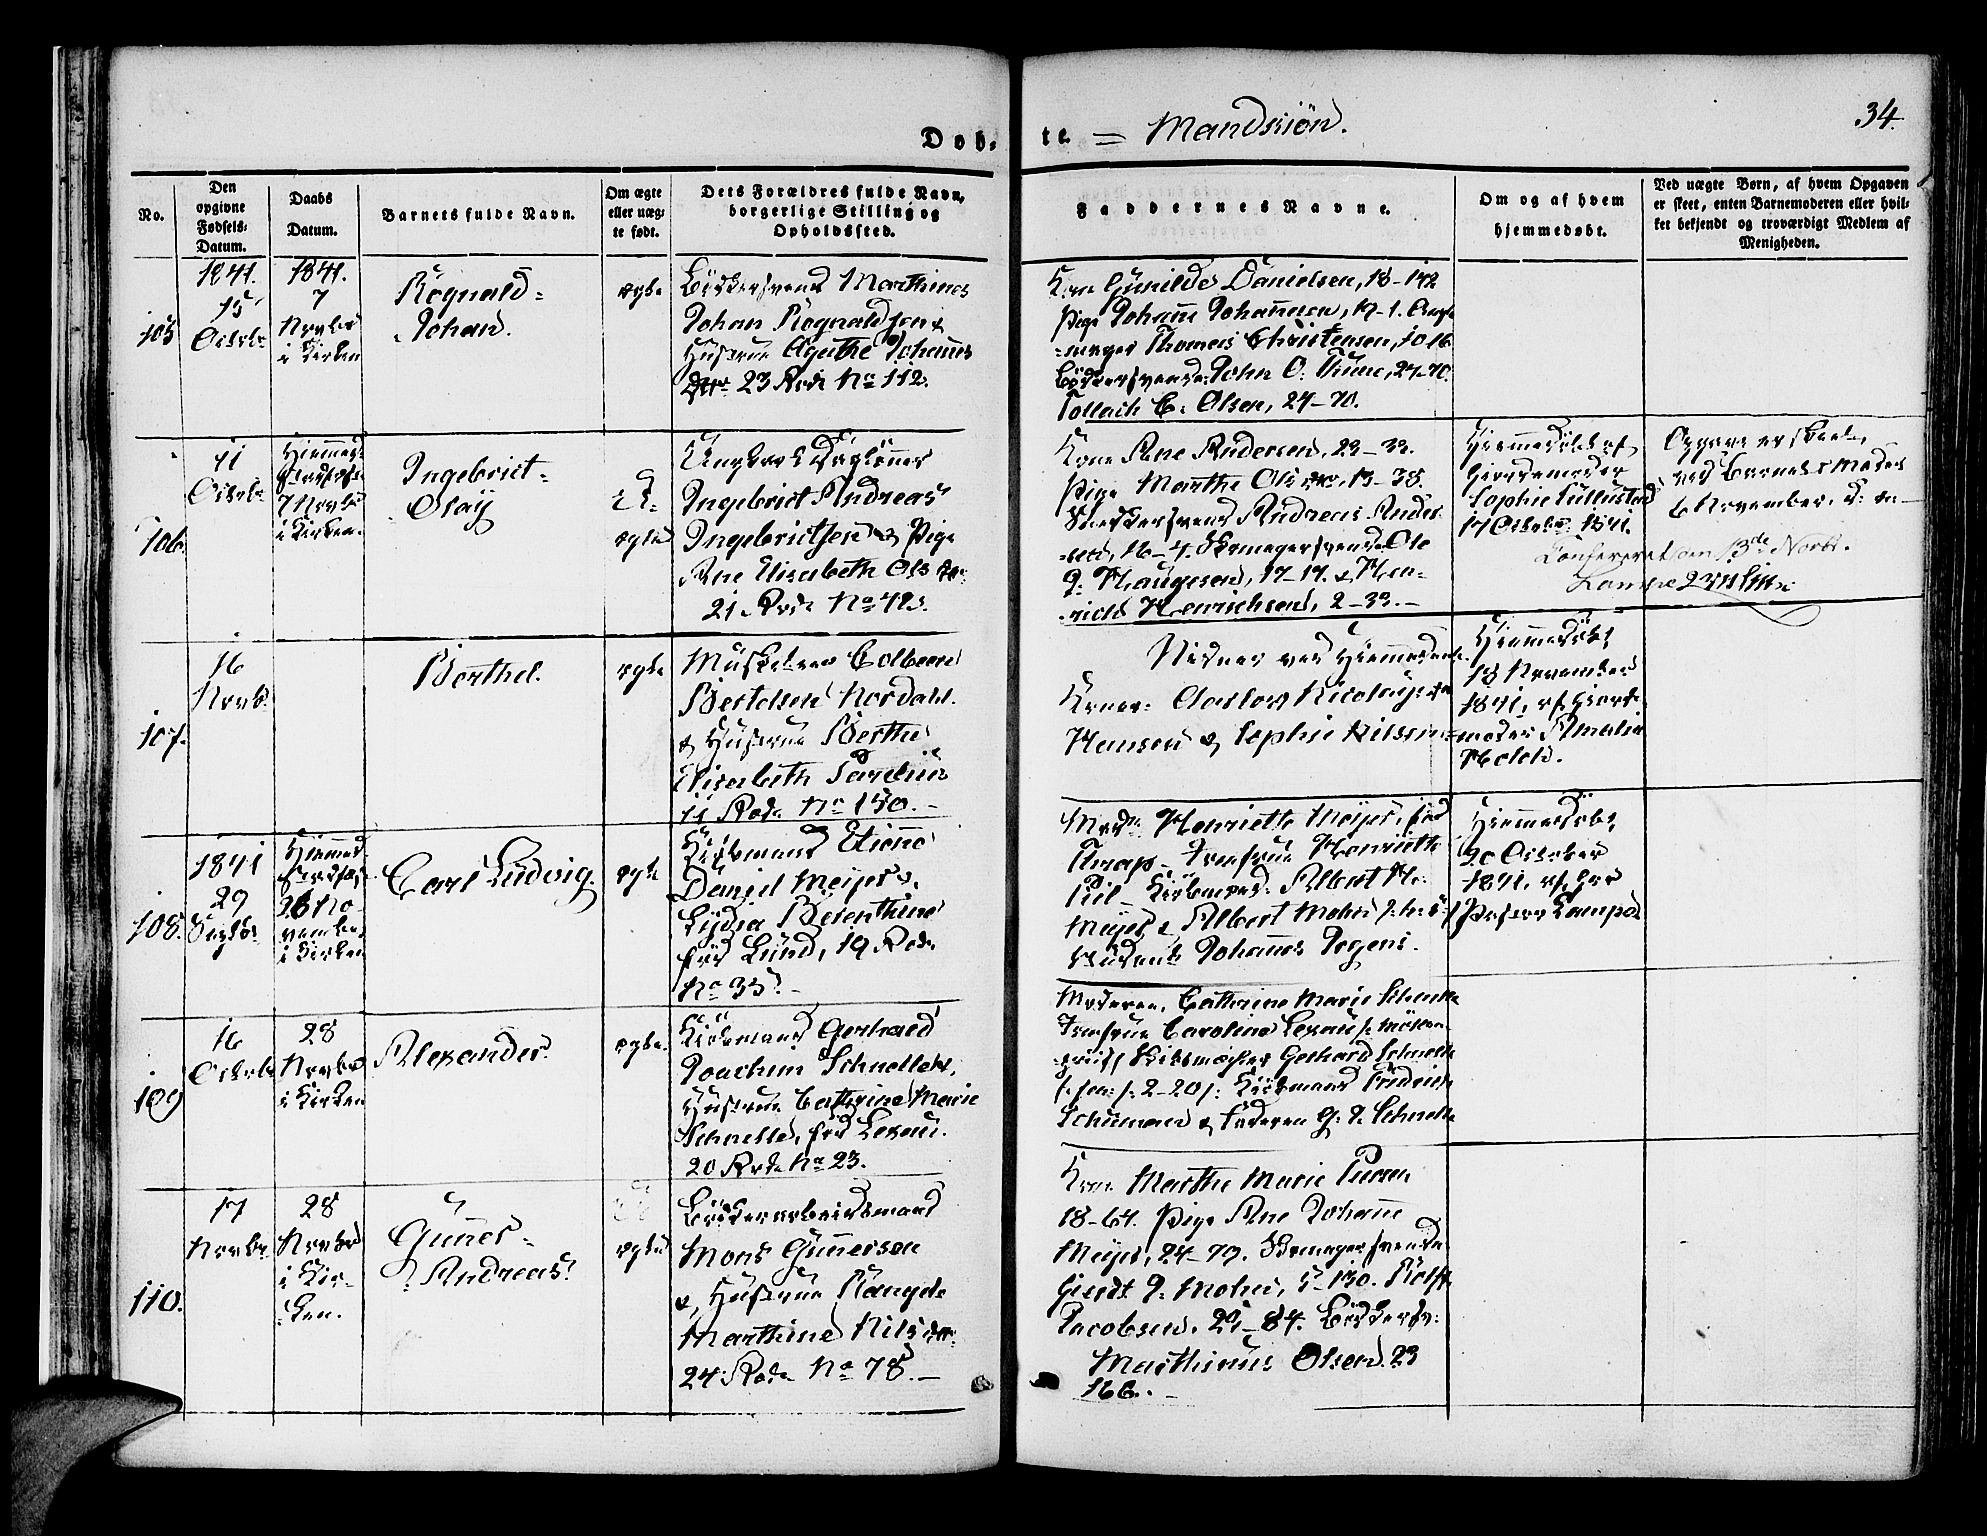 Døb-te = Mandkiön.
34.
No.
Den
opgivne
Fødsels-
Datum.
Daabs
Datum.
Barnets fulde Navn.
Om ægte
eller uæg-
te født.
Dets Forældres fulde Navn,
borgerlige Stilling og
Opholdssted.
Faddernes Navne.
Om og af hvem
hjemmedøbt.
Ved uægte Børn, af hvem Opgaven
er skeet, enten Barnemoderen eller hvil-
ket bekjendt og troværdigt Medlem af
Menigheden.
105
1841.
15
Octobr
1841.
7
Novbr
i Kirken
Rognald
Johan.
ægte
Bödkersvend Marthinus
Johan Rognaldsen &
Hustrue Agathe Johannes
Dtr 23 Rode No 112.
Kone Gunilde Danielsen, 18-142
Pige Johanne Johannesen, 17-1.
Thomas Christensen, 10-16
Bödkersvende John O. Thune, 24-70.
Tollach C. Olsen, 24-70.
106.
11
Octobr
Hiemmed.
7 Novbr
i Kirken.
Ingebrict
Olay
U-
ægte
Ungkarl
Ingebrict Andreas
Ingebrictsen & Pige
Ane Elisabeth Ols Dtr
21 Rode No 42.
Kone Ane Andersen, 23-33.
Pige Marthe Olsen, 13-38.
Andreas Ander-
sen, 16-4. Skomagersvend Ole
J. Haugesen, 17-17. & Hen-
rich Henrichsen, 2-33.
Hiemmedöbt af
Giordemoder
Sophie Tullustad
17 Octobr 1841.
Opgave er skeet
ved Barnets Moder
6 November.
Confereret den 13de Novbr.
107.
16
Novb.
Berthel.
ægte
Musketeer Colbeen
Bertelsen Nordahl.
& Hustrue Berthe
Elisabeth Pardün
11 Rode No 150.
Vidner ved Hiemmedaab.
Koner Aaslov Nicolaysen
Hansen & Sophie Nilsen
Hiemmedöbt
18 November
1841, af Giorde-
moder Amalia
Holck.
108.
1841
29
Septbr
Hiemmed.
No-
vember
i Kirken
Carl Ludvig.
ægte
Kiöbmand Etienne
Daniel Meyer &
Lydia Berenthine
fød Lund, 19 Rode
No 35.
Mad. Henriette Meyer, fød
Knap, Jomfrue Henriette
Piil, Kiöbmænd: Albert H.
Meyer & Albert Mohn
Student Johannes Jrgens.
Hiemmedöbt
20 October
1841, af Hr
Pastor Kampe
109
16
Octobr
28
Novbr
i Kirken
Alexander.
ægte.
Kiöbmand Gerhard
Joachim Schnelle &
Hustrue Cathrine Marie
Schnelle, fød Lexau.
20 Rode No 23.
Moderen, Cathrine Marie Schnelle
Jomfrue Caroline Lexau
Gerhard Schnelle
sen: 2-20 Kiöbmand Fridrich
Schumann & Faderen G. J. Schnelle
110.
17
Novbr
28
Novbr
i Kir-
ken.
Gunner
Andreas.
ægte
Bödkerarbeidsmand
Mons Gunnersen
& Hustrue Rangele
Marthine Nils Dtr
24 Rode No 78.
Kone Marthe Marie
18-64. Pige Ane Johanne
Meyer, 24-79. Skomagersvende
Gierdt J. Mohn, 5-130. Rolf
Jacobsen, 24-84. Bödkersv:
Marthinus Olsen 23
166.